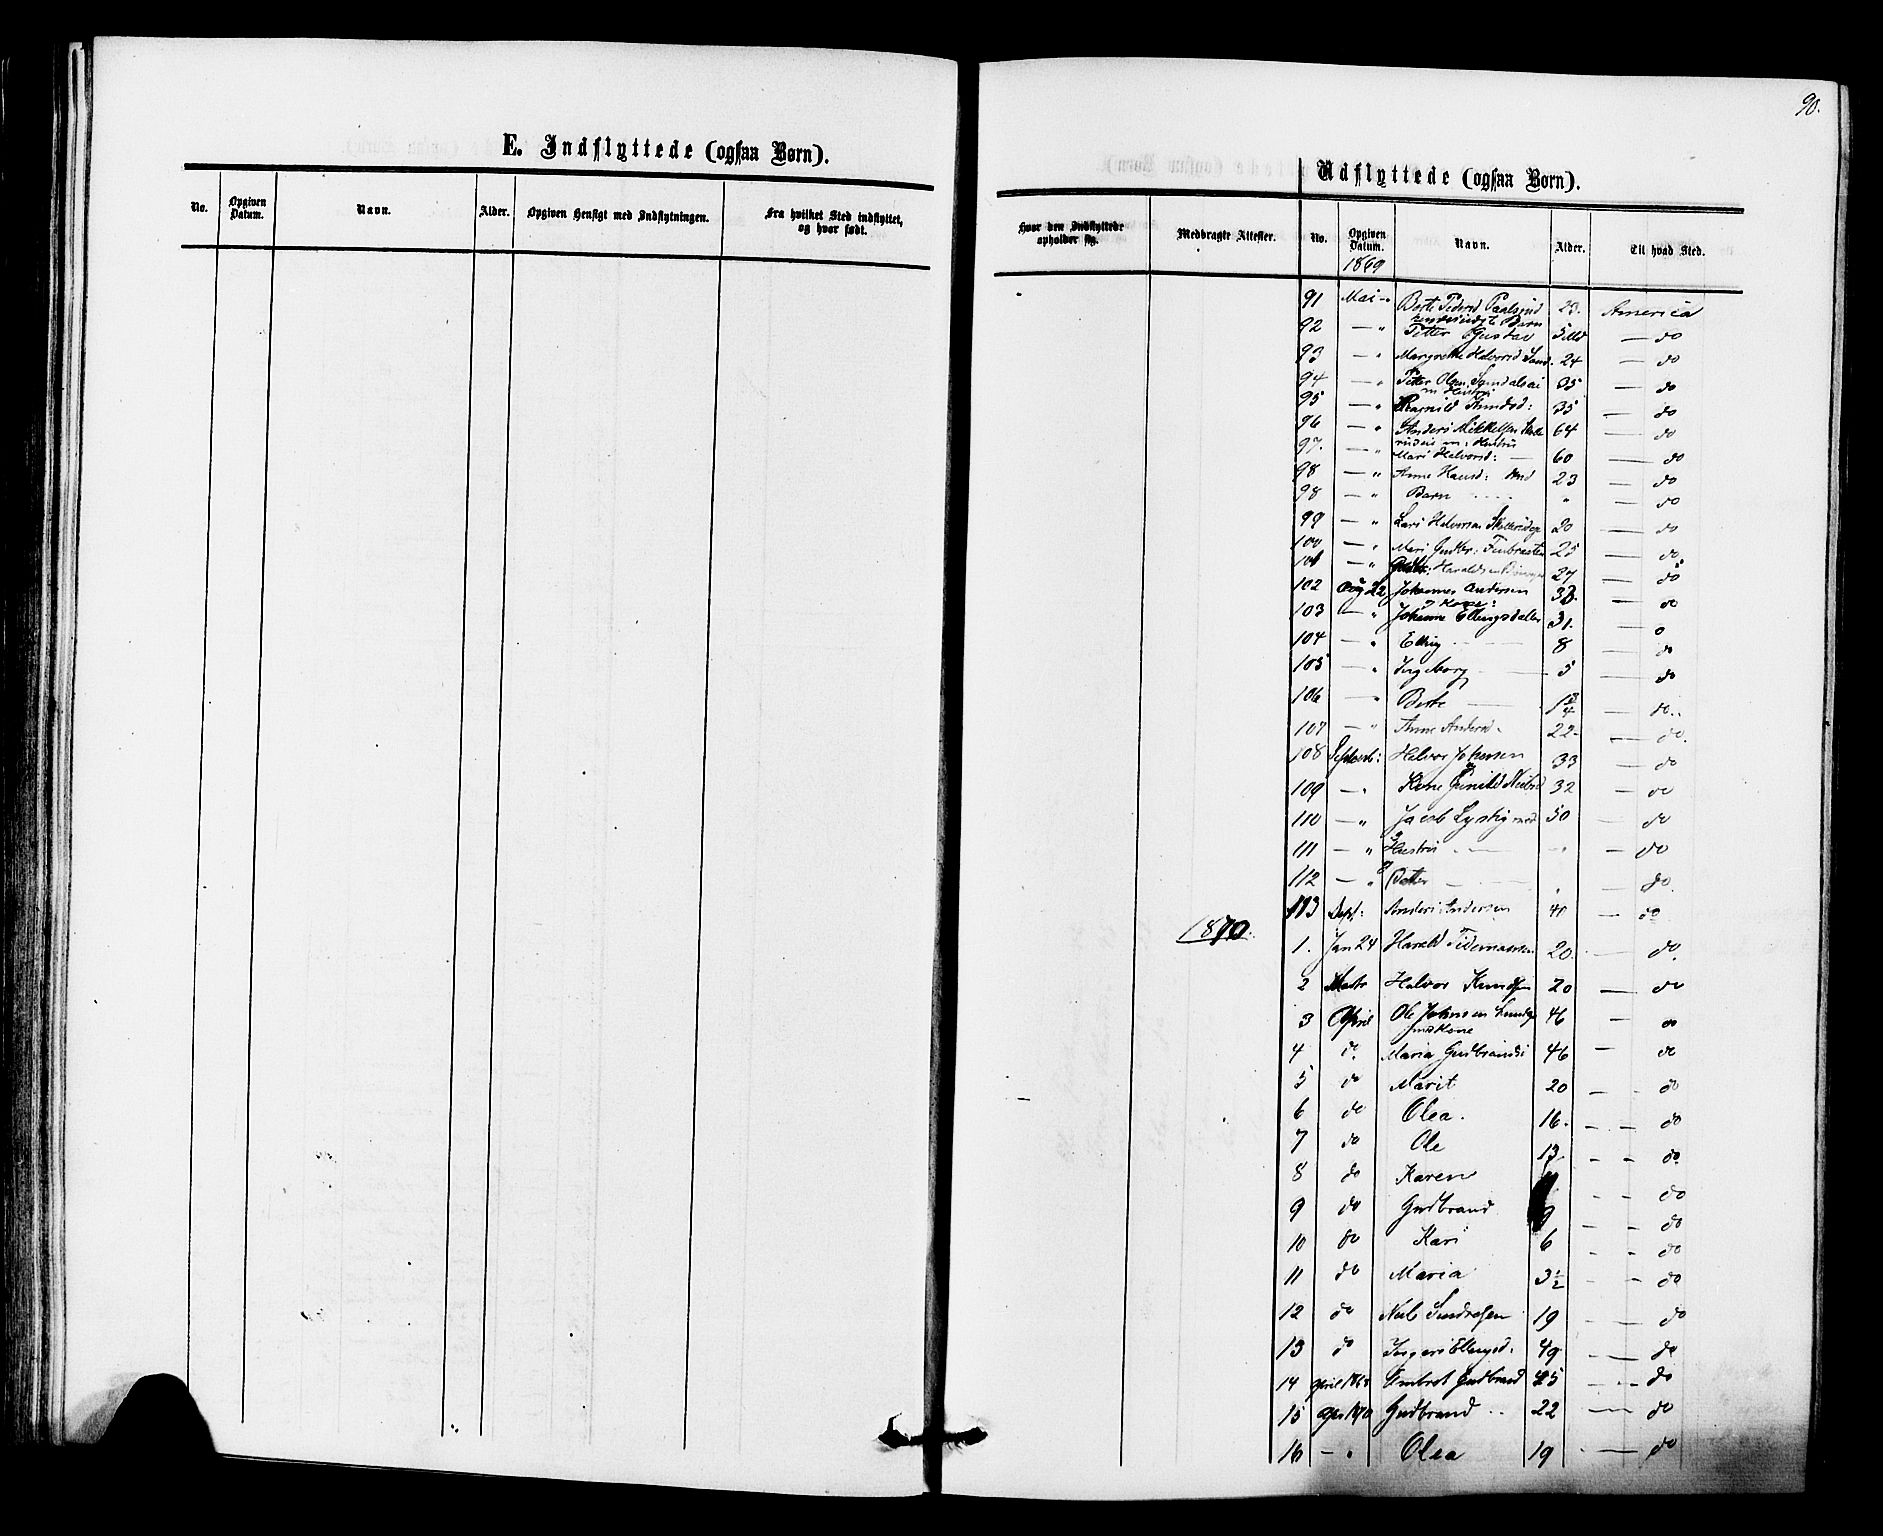 90.
E. Indflyttede (ogsaa Børn).
No. Opgiven Datum. Navn. Alder. Opgiven Hensigt med Indflytningen. Fra hvilket Sted indflyttet, og hvor født.
Udflyttede (ogsaa Børn).
Hvor den Indflyttede opholder sig. Medbragte Attester. No. Opgiven Datum. Navn. Alder. Til hvad Sted.
1869
91 Mai " Berte Pedersd 23. America
92 — " Petter Gustav 5 Md — do
93 — " Margrethe Halvorsd 24 — do
94 — " Petter Olsen 35 — do
95 — " Ragnild 35 — do
96 — " Anders Mikkelsen 64 — do
m: Hustru
97. — " Mari Halvorsd: — 60 — do
98 — " Anne Hansd: med 23 — do
98 — " Barn " — do
99 — " Lars Halvorsen 20 — do
100 — " Mari Gudbr: 25 — do
101 — " Haraldsen 27 — do
102 Aug 22 Johannes Andersen 33. — do
103 — " Johanne Ellingsdatter 31. — o
104 — " Elling 8 — do
105 — " Ingeborg 5 — do
106 — " Berte 1 3/4 — do..
107 — " Anne Andersd. 22 — do.
108 Septemb: Halvor Johansen 33 — do
109 — " Kone Gunild 32 — do
110 — " Jacob Lystig med 50 — do
111 — " Hustru " — do
112 — " Datter " — do.
113 Sept: Anders Andersen 40 — do
1870.
1. Jan 24 Harald Tidemansen 20. — do.
2 Marts Halvor Knudsen 20 — do
3 April Ole Johnsen 46 — do
4 do. Maria Gudbrands 46 — do
5 do Marit 20 — do
6 do Olea. 16. — do
7 do Ole 13 — do.
8 do Karen — do
9 do Gudbrand 9 — do
10 do Kari 6 — do
11 do Maria 3 1/2 — do
12 do Nels 19 — do
13 do Ingeri Ellingsd: 49 — do
14 April Embret Gudbrand 25 — do
15 Apr 1870 Gudbrand 22 — do
16 — " Olea 19 — do